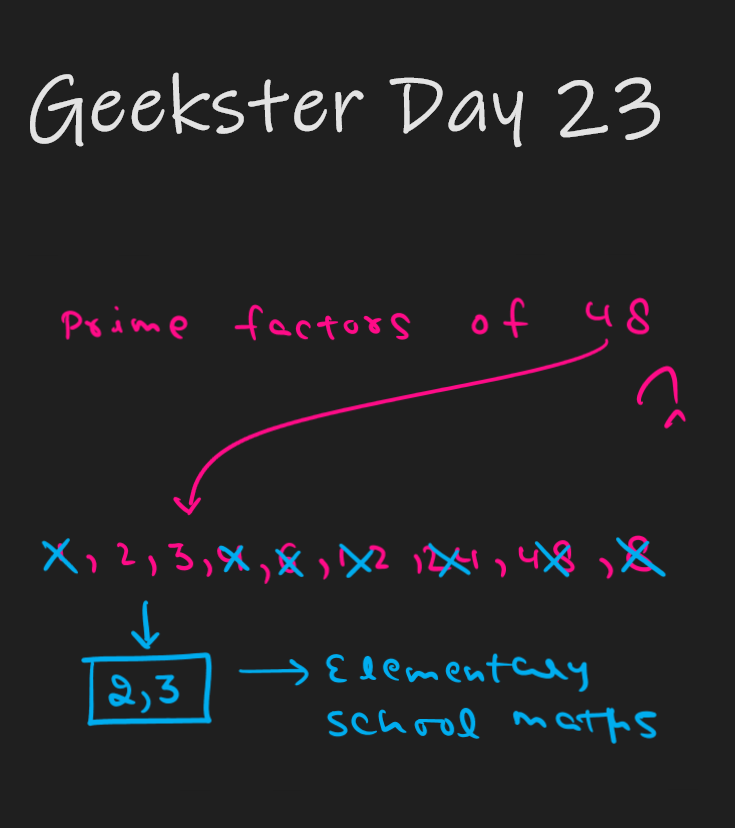 Geekster Day 23
Prime factors of 48
1, 2, 3, 4, 6, 12, 24, 48, 8
2,3
Elementary
school maths